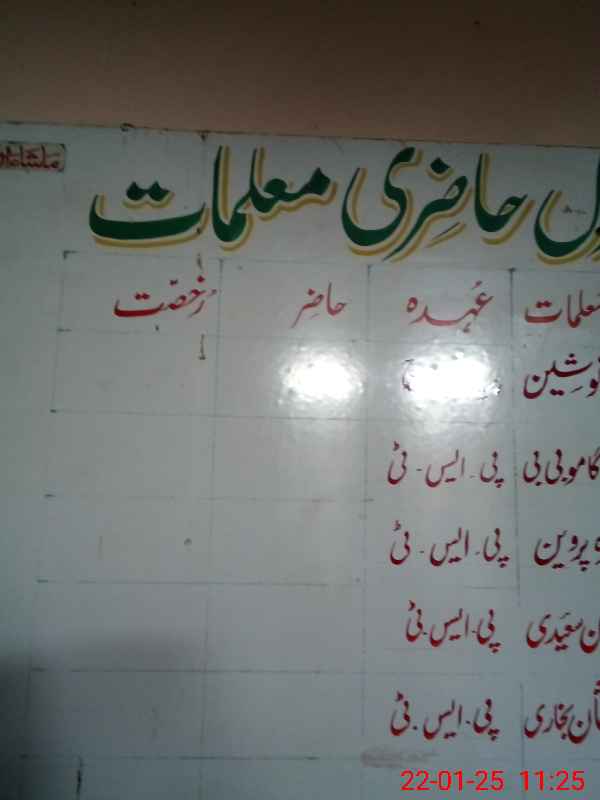 حاضری معلمات
معلمات عُہدہ حاضِر رُخصّت
نوشین
گامو بی بی پی۔ایس۔ٹی
پروین پی۔ایس۔ٹی
سعیدی پی۔ایس۔ٹی
بخاری پی۔ایس۔ٹی
22-01-25 11:25